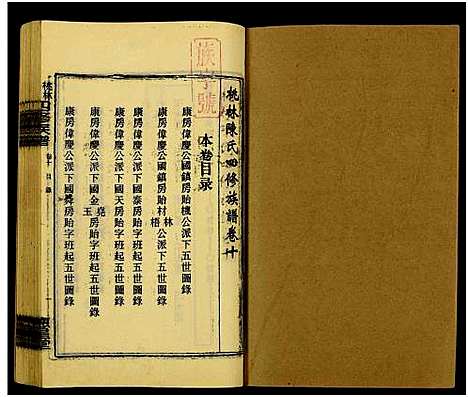 族字號
桃林陳氏四修族譜卷十
本卷目录
康房偉慶公國鎮房貽機公派下五世圖錄
康房偉慶公國鎮房貽材林梧公派下五世圖錄
康房偉慶公派下國泰房貽字班起五世圖錄
康房偉慶公派下國天房貽字班起五世圖錄
康房偉慶公派下國金堯玉房貽字班起五世圖錄
康房偉慶公派下國舜房貽字班起五世圖錄